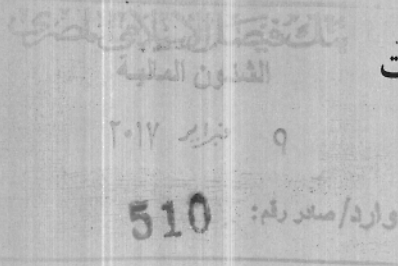 بنك فيصل الإسلامي المصري
الشئون المالية
٩ فبراير ٢٠١٧
وارد/صادر رقم:
510